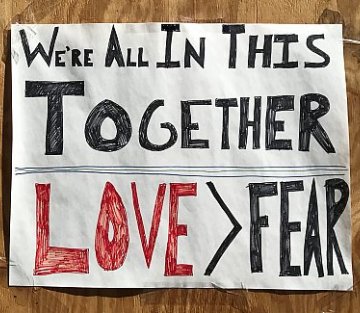 We're All In This
Together
Love>Fear